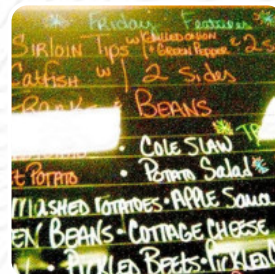 Friday Features
Sirloin Tips w/ Grilled Onion & Green Pepper & 2 S
Catfish w/ 2 Sides
Beans
• Cole Slaw
Potato • Potato Salad
Mashed Potatoes • Apple Sauce
en Beans • Cottage Cheese
• Pickled Beets • Pickled